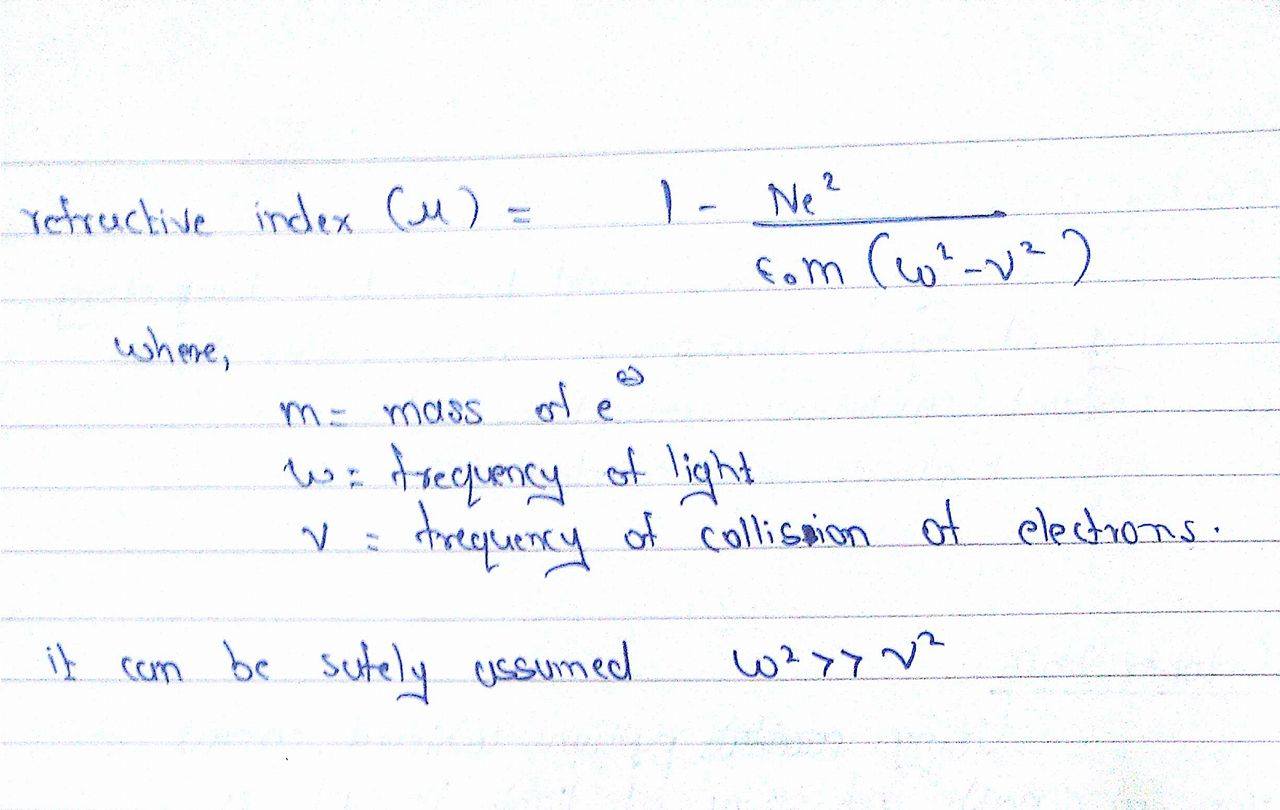 refractive index (μ) = 1 - Ne²
ε₀m (ω²-ν²)
where,
m= mass of e⊖
ω= frequency of light
ν = frequency of collision of electrons.
it can be safely assumed ω²>>ν²